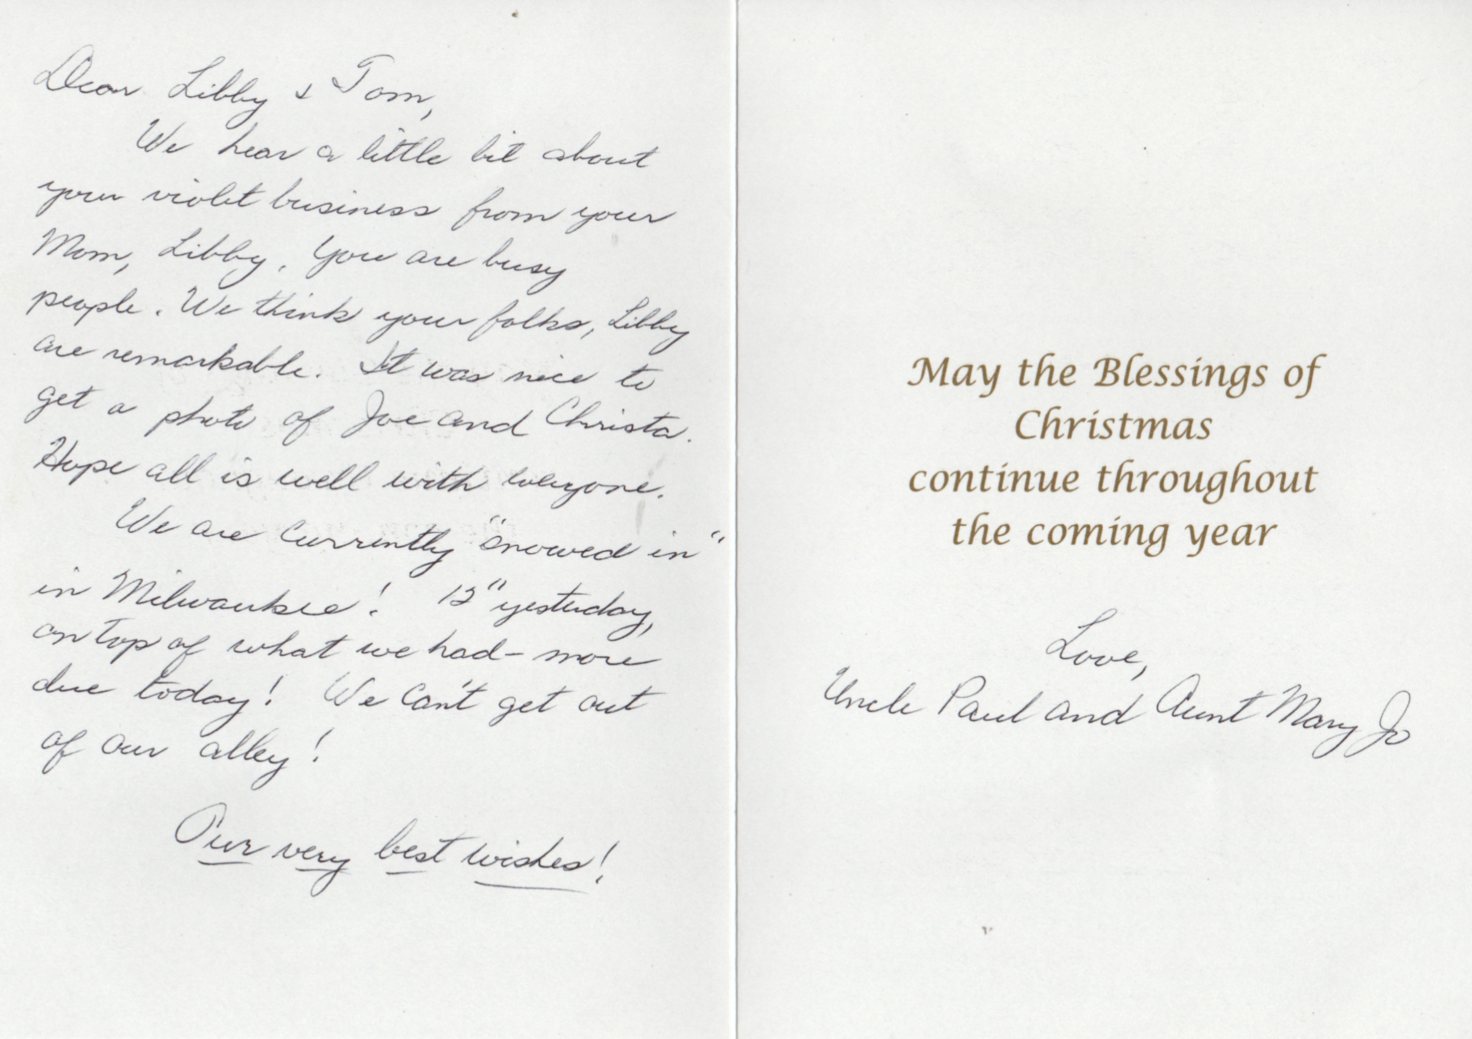 Dear Libby & Tom,
We hear a little bit about
your violet business from your
Mom, Libby. You are busy
people. We think your folks, Libby
are remarkable. It was nice to
get a photo of Joe and Christa.
Hope all is well with everyone.
We are currently "snowed in"
in Milwaukee! 12" yesterday,
on top of what we had- more
due today! We can't get out
of our alley!
Our very best wishes!
May the Blessings of
Christmas
continue throughout
the coming year
Love,
Uncle Paul and Aunt Mary Jo